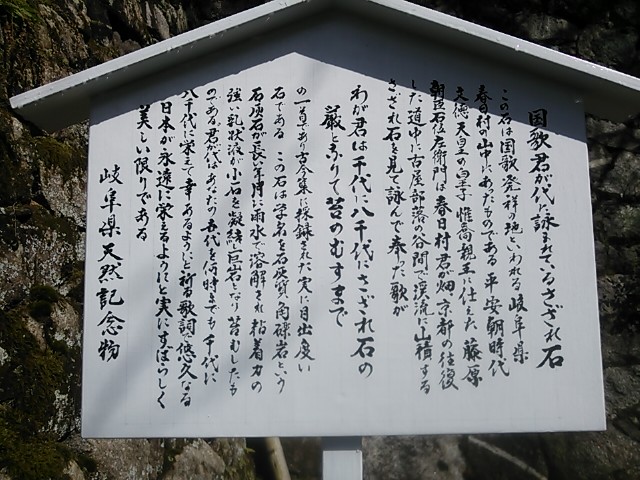 国歌君が代に詠まれているさざれ石
この石は国歌発祥の地といわれる岐阜県
春日村の山中にあったものである 平安朝時代
文徳天皇の皇子 惟喬親王に仕えた 藤原
朝臣石位左衛門は 春日村君が畑 京都の往復
した道中に古屋部落の谷間で渓流に山積する
さざれ石を見て詠んで奉った歌が
わが君は千代に八千代にさざれ石の
巌となりて苔のむすまで
の一首であり古今集に採録された実に目出度い
石である この石は学名を石灰質角礫岩という
石灰石が長年月に雨水で溶解され粘着力の
強い乳状液が小石を凝結し巨岩となり苔むしたも
のである 君が代はあなたの五代を何時までも千代に
八千代に栄えて幸あるようにと祈る歌詞で悠久なる
日本が永遠に栄えるようにと実にすばらしく
美しい限りである
岐阜県天然記念物